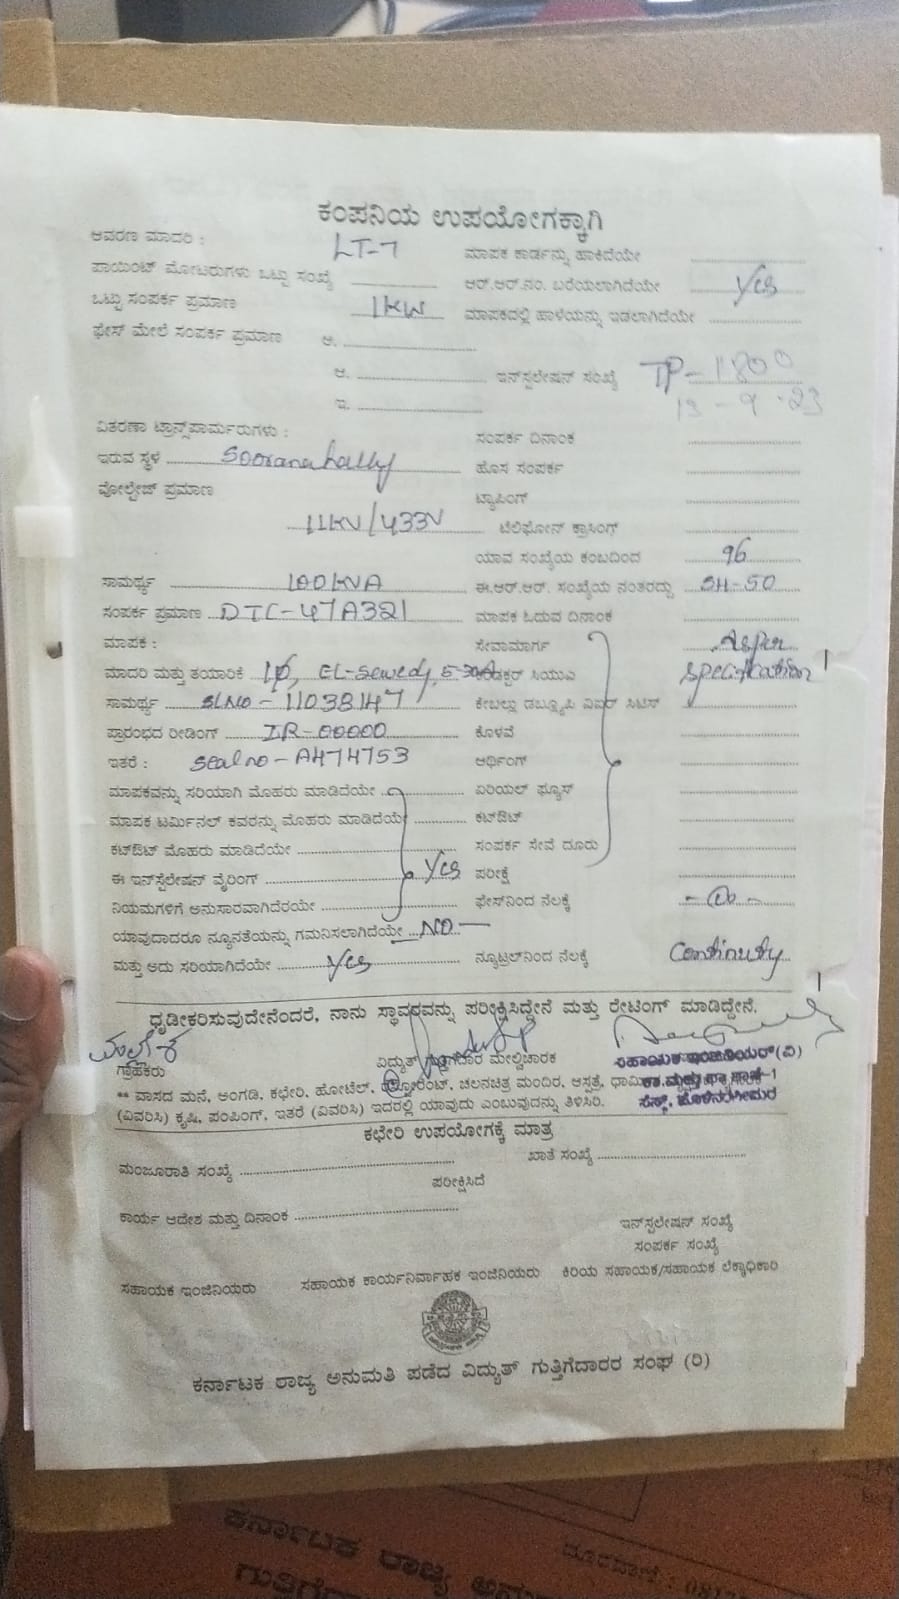 ಕಂಪನಿಯ ಉಪಯೋಗಕ್ಕಾಗಿ
ಆವರಣ ಮಾದರಿ : LT-7 ಮಾಪಕ ಕಾರ್ಡನ್ನು ಹಾಕಿದೆಯೇ
ಪಾಯಿಂಟ್ ಮೋಟರುಗಳು ಒಟ್ಟು ಸಂಖ್ಯೆ ಆರ್.ಆರ್.ನಂ. ಬರೆಯಲಾಗಿದೆಯೇ Yes
ಒಟ್ಟು ಸಂಪರ್ಕ ಪ್ರಮಾಣ 1KW ಮಾಪಕದಲ್ಲಿ ಹಾಳೆಯನ್ನು ಇಡಲಾಗಿದೆಯೇ
ಫೇಸ್ ಮೇಲೆ ಸಂಪರ್ಕ ಪ್ರಮಾಣ ಅ.
ಆ. ಇನ್‌ಸ್ಟಲೇಷನ್ ಸಂಖ್ಯೆ TP-11800
ಇ. 13-9-23
ವಿತರಣಾ ಟ್ರಾನ್ಸ್‌ಪಾರ್ಮರುಗಳು : ಸಂಪರ್ಕ ದಿನಾಂಕ
ಇರುವ ಸ್ಥಳ Sooranahally ಹೊಸ ಸಂಪರ್ಕ
ವೋಲ್ಟೇಜ್ ಪ್ರಮಾಣ ಟ್ಯಾಪಿಂಗ್
11KV/433V ಟೆಲಿಫೋನ್ ಕ್ರಾಸಿಂಗ್
ಯಾವ ಸಂಖ್ಯೆಯ ಕಂಬದಿಂದ 96
ಸಾಮರ್ಥ್ಯ 100KVA ಈ.ಆರ್.ಆರ್. ಸಂಖ್ಯೆಯ ನಂತರದ್ದು SH-50
ಸಂಪರ್ಕ ಪ್ರಮಾಣ DTC-47A321 ಮಾಪಕ ಓದುವ ದಿನಾಂಕ
ಮಾಪಕ : ಸೇವಾಮಾರ್ಗ As per
ಮಾದರಿ ಮತ್ತು ತಯಾರಿಕೆ 1φ, EL-Sewedy, 5-30A ಸಿಯುಎ specification
ಸಾಮರ್ಥ್ಯ SLNO-11038147 ಕೇಬಲ್ಲು ಡಬ್ಲ್ಯೂಪಿ ವಿಐಆರ್ ಸಿಟಿಸ್
ಪ್ರಾರಂಭದ ರೀಡಿಂಗ್ IR-00000 ಕೊಳವೆ
ಇತರೆ : Seal no-A474753 ಅರ್ಥಿಂಗ್
ಮಾಪಕವನ್ನು ಸರಿಯಾಗಿ ಮೊಹರು ಮಾಡಿದೆಯೇ ಏರಿಯಲ್ ಫ್ಯೂಸ್
ಮಾಪಕ ಟರ್ಮಿನಲ್ ಕವರನ್ನು ಮೊಹರು ಮಾಡಿದೆಯೇ ಕಟ್‌ಔಟ್
ಕಟ್‌ಔಟ್ ಮೊಹರು ಮಾಡಿದೆಯೇ ಸಂಪರ್ಕ ಸೇವೆ ದೂರು
ಈ ಇನ್‌ಸ್ಟಲೇಷನ್ ವೈರಿಂಗ್ Yes ಪರೀಕ್ಷೆ
ನಿಯಮಗಳಿಗೆ ಅನುಸಾರವಾಗಿದೆರಯೇ ಫೇಸ್‌ನಿಂದ ನೆಲಕ್ಕೆ
ಯಾವುದಾದರೂ ನ್ಯೂನತೆಯನ್ನು ಗಮನಿಸಲಾಗಿದೆಯೇ NO
ಮತ್ತು ಅದು ಸರಿಯಾಗಿದೆಯೇ Yes ನ್ಯೂಟ್ರಲ್‌ನಿಂದ ನೆಲಕ್ಕೆ Continuty
ಧೃಡೀಕರಿಸುವುದೇನೆಂದರೆ, ನಾನು ಸ್ಥಾವರವನ್ನು ಪರೀಕ್ಷಿಸಿದ್ದೇನೆ ಮತ್ತು ರೇಟಿಂಗ್ ಮಾಡಿದ್ದೇನೆ.
ಗ್ರಾಹಕರು ವಿದ್ಯುತ್ ಗುತ್ತಿಗೆದಾರ ಮೇಲ್ವಿಚಾರಕ ಸಹಾಯಕ ಇಂಜಿನಿಯರ್(ವಿ)
** ವಾಸದ ಮನೆ, ಅಂಗಡಿ, ಕಛೇರಿ, ಹೋಟೆಲ್, ರೆಸ್ಟೋರೆಂಟ್, ಚಲನಚಿತ್ರ ಮಂದಿರ, ಆಸ್ಪತ್ರೆ,
(ವಿವರಿಸಿ) ಕೃಷಿ, ಪಂಪಿಂಗ್, ಇತರೆ (ವಿವರಿಸಿ) ಇದರಲ್ಲಿ ಯಾವುದು ಎಂಬುವುದನ್ನು ತಿಳಿಸಿರಿ.
ಕಛೇರಿ ಉಪಯೋಗಕ್ಕೆ ಮಾತ್ರ
ಮಂಜೂರಾತಿ ಸಂಖ್ಯೆ ಖಾತೆ ಸಂಖ್ಯೆ
ಪರೀಕ್ಷಿಸಿದೆ
ಕಾರ್ಯ ಆದೇಶ ಮತ್ತು ದಿನಾಂಕ
ಇನ್‌ಸ್ಟಲೇಷನ್ ಸಂಖ್ಯೆ
ಸಂಪರ್ಕ ಸಂಖ್ಯೆ
ಸಹಾಯಕ ಇಂಜಿನಿಯರು ಸಹಾಯಕ ಕಾರ್ಯನಿರ್ವಾಹಕ ಇಂಜಿನಿಯರು ಕಿರಿಯ ಸಹಾಯಕ/ಸಹಾಯಕ ಲೆಕ್ಕಾಧಿಕಾರಿ
ಕರ್ನಾಟಕ ರಾಜ್ಯ ಅನುಮತಿ ಪಡೆದ ವಿದ್ಯುತ್ ಗುತ್ತಿಗೆದಾರರ ಸಂಘ (ರಿ)
ಕರ್ನಾಟಕ ರಾಜ್ಯ